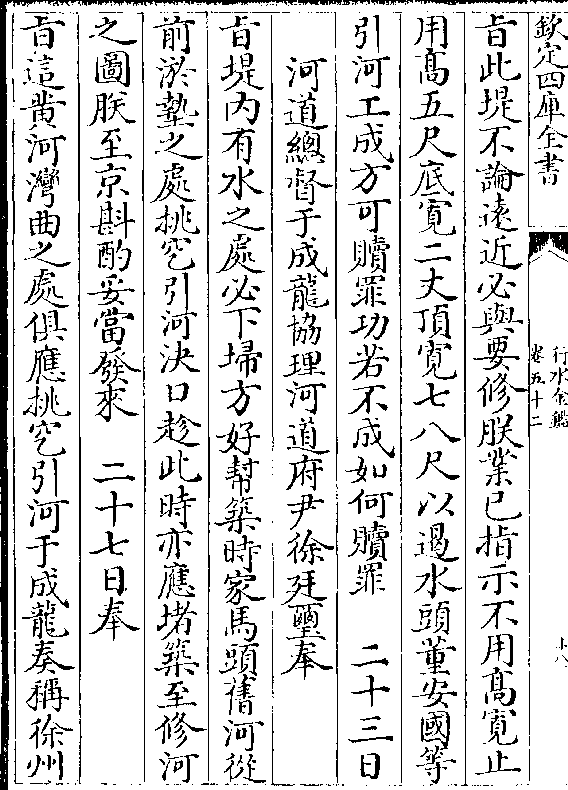 欽定四庫全書
行水金鑑
卷五十二
十八
旨此堤不論遠近必與要修朕業已指示不用髙寛止
用髙五尺底寛二丈頂寛七八尺以遏水頭董安國等
引河工成方可贖罪功若不成如何贖罪　二十三日
河道總督于成龍協理河道府尹徐廷璽奉
旨堤内有水之處必下埽方好幫築時家馬頭舊河從
前淤墊之處挑空引河決口趁此時亦應堵築至修河
之圖朕至京斟酌妥當發來　二十七日奉
旨這黄河灣曲之處俱應挑空引河于成龍奏稱徐州